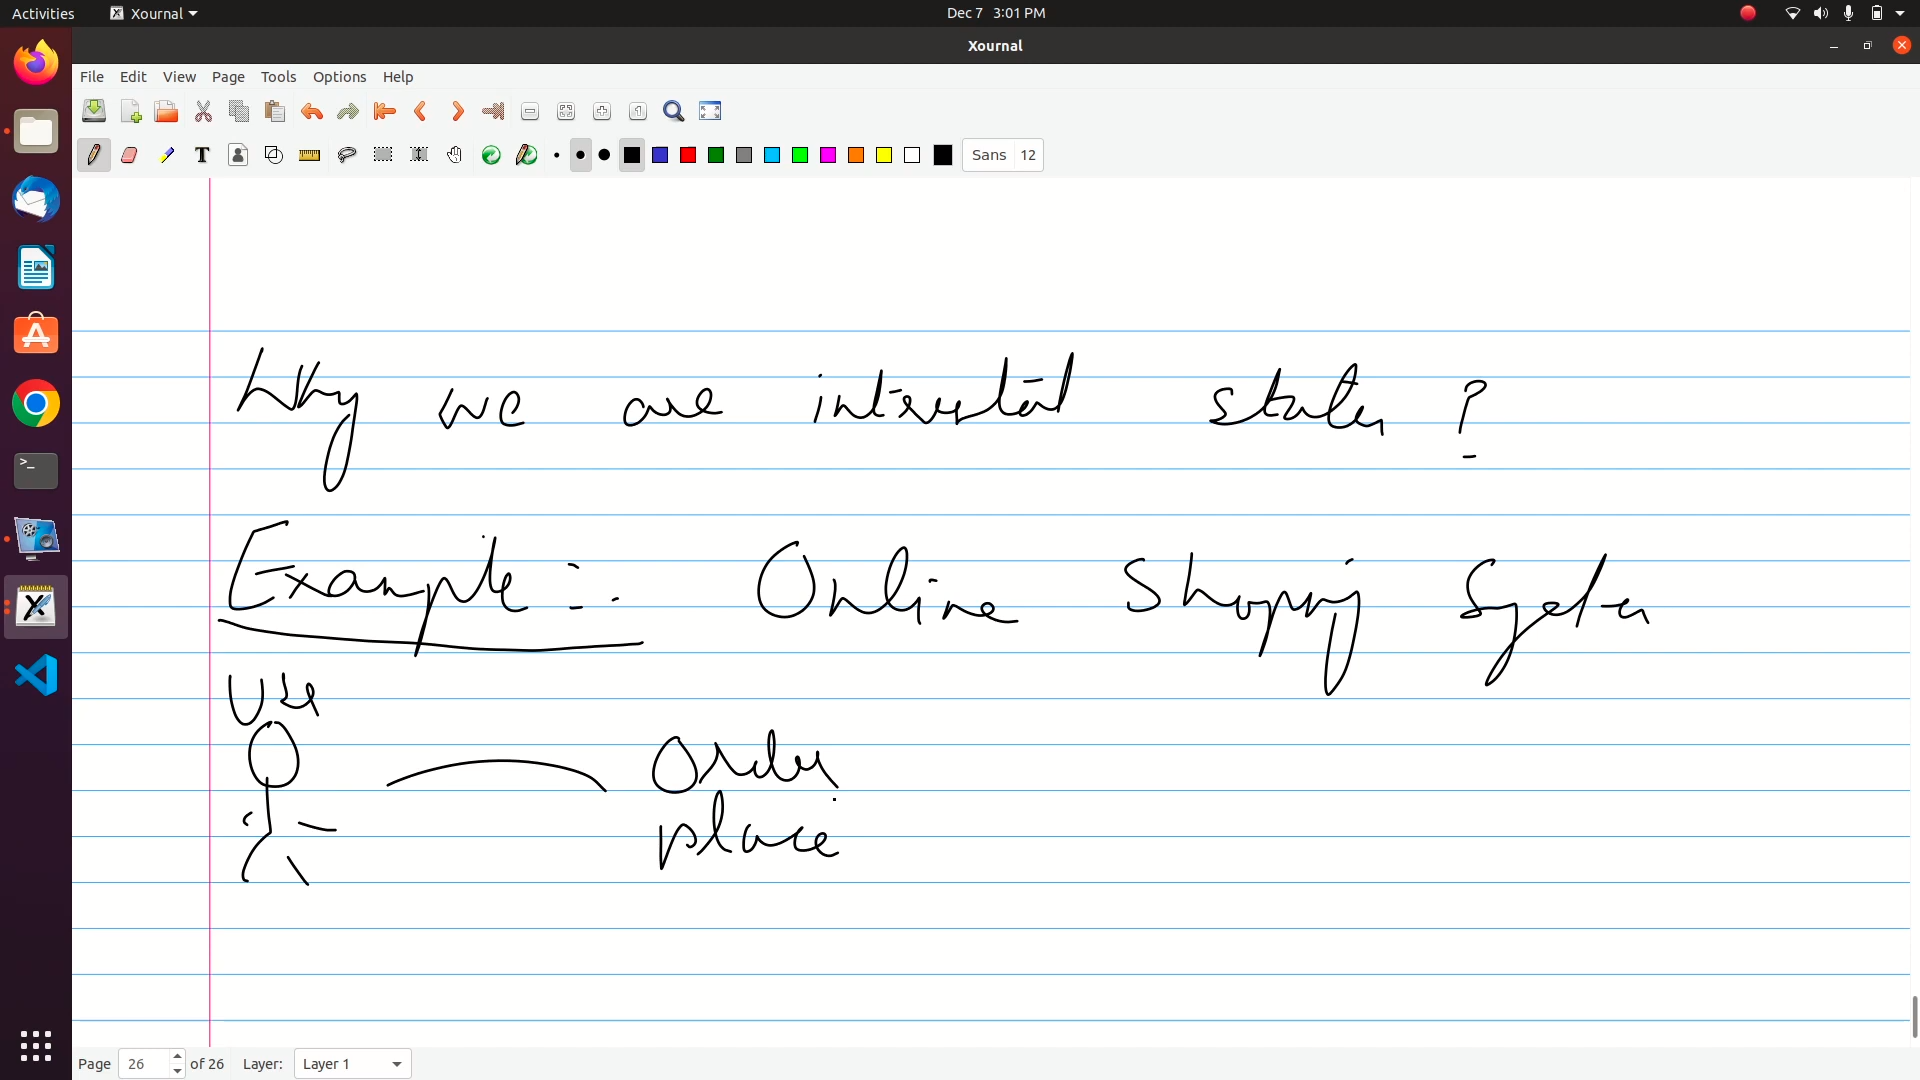 Activities Xournal Dec 7 3:01 PM
Xournal
File Edit View Page Tools Options Help
T Sans 12
Why we are interested states ?
Example :- Online Shopping System
User
Order
place
Page 26 of 26 Layer: Layer 1